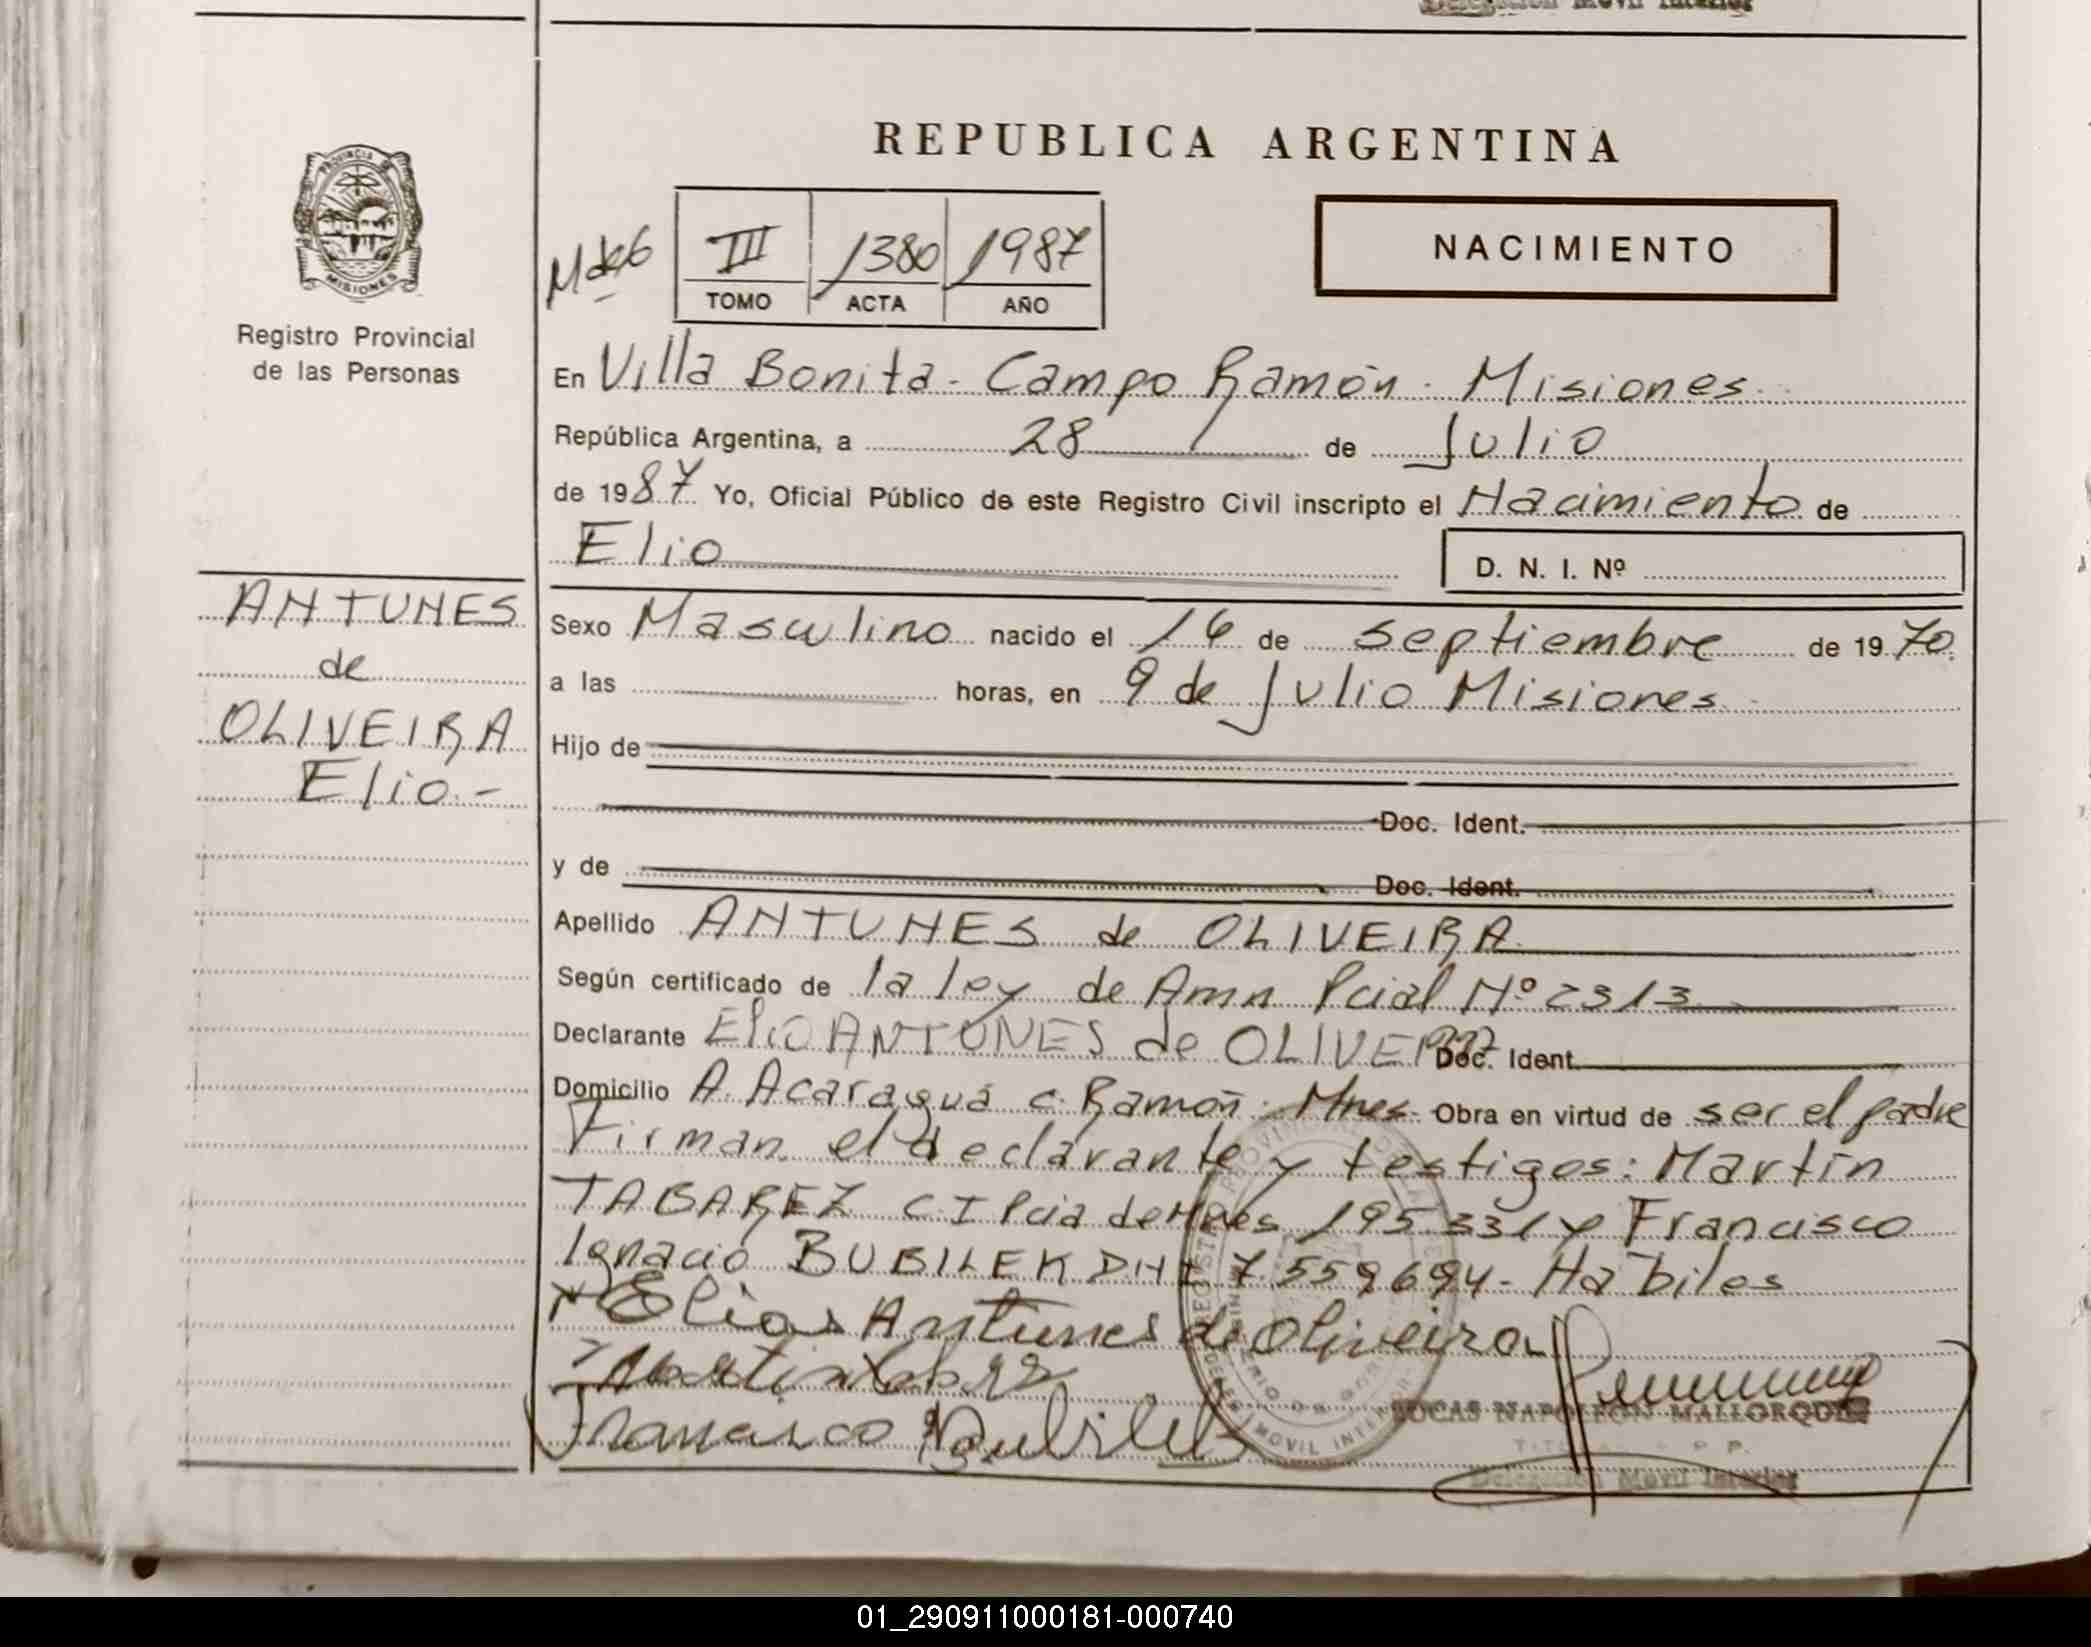 Delegación Móvil Interior
REPUBLICA ARGENTINA
PROVINCIA DE
MISIONES
Registro Provincial
de las Personas
III 1380 1987
TOMO ACTA AÑO
NACIMIENTO
En Villa Bonita - Campo Ramón - Misiones
República Argentina, a 28 de Julio
de 1987 Yo, Oficial Público de este Registro Civil inscripto el Nacimiento de
Elio D. N. I. Nº
ANTUNES
de
OLIVEIRA
Elio -
Sexo Masculino nacido el 16 de Septiembre de 1970
a las horas, en 9 de Julio Misiones
Hijo de
Doc. Ident.
y de Doc. Ident.
Apellido ANTUNES de OLIVEIRA
Según certificado de la ley de Amn Pcial Nº 2313
Declarante Elio ANTUNES de OLIVEIRA Doc. Ident.
Domicilio A. Acaraguá C. Ramón - Mnes - Obra en virtud de ser el padre
Firman el declarante y testigos: Martín
TABAREZ C I Pcia de Mnes 195331 y Francisco
Ignacio BUBILEK DNI 7.559694 - Hábiles
Elias Antunes de Oliveira
Francisco Baubilek
LUCAS NAPOLEON MALLORQUIN
Delegación Móvil Interior
01_290911000181-000740